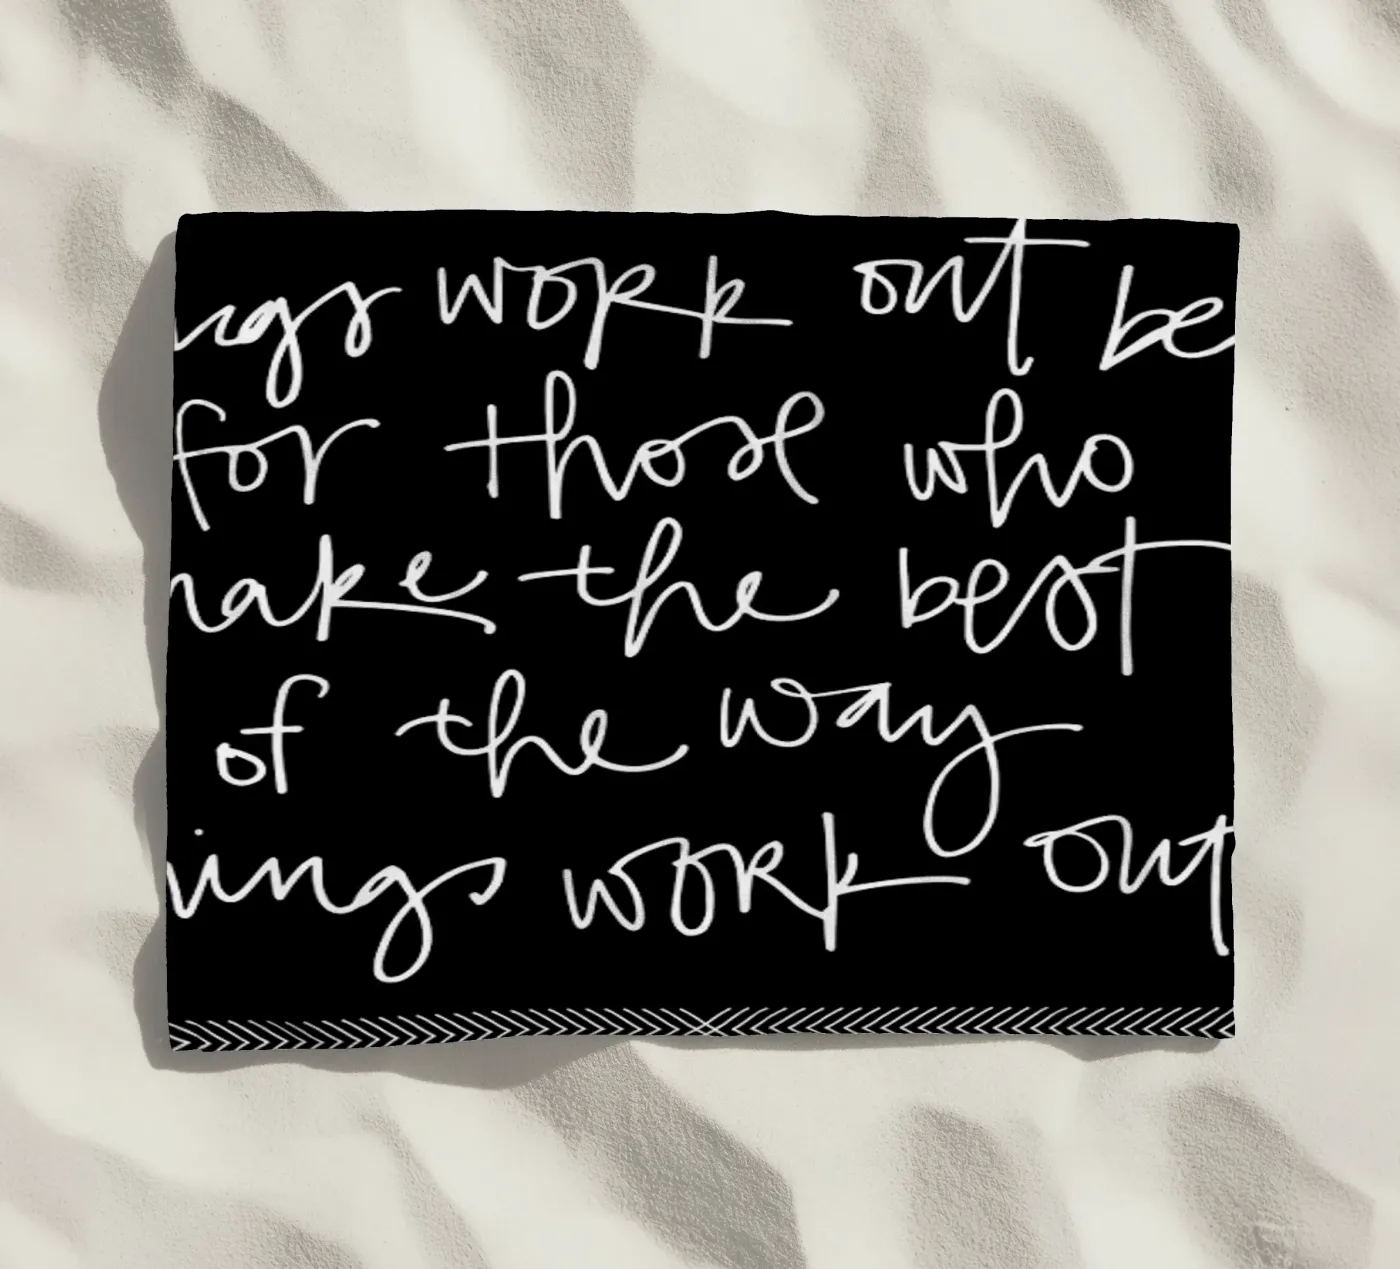 ngs work out be
for those who
ake the best
of the way
ings work out